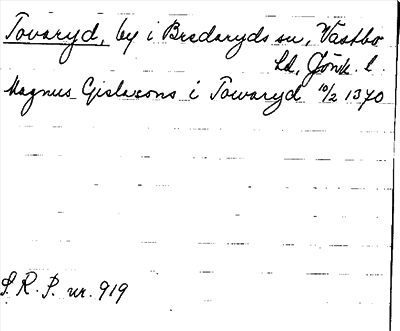 Tovaryd, by i Bredaryds sn, Västbo
hd, Jönk. l.
Magnus Gislasons i Towaryd 10/2 1370
S. R. P. nr. 919